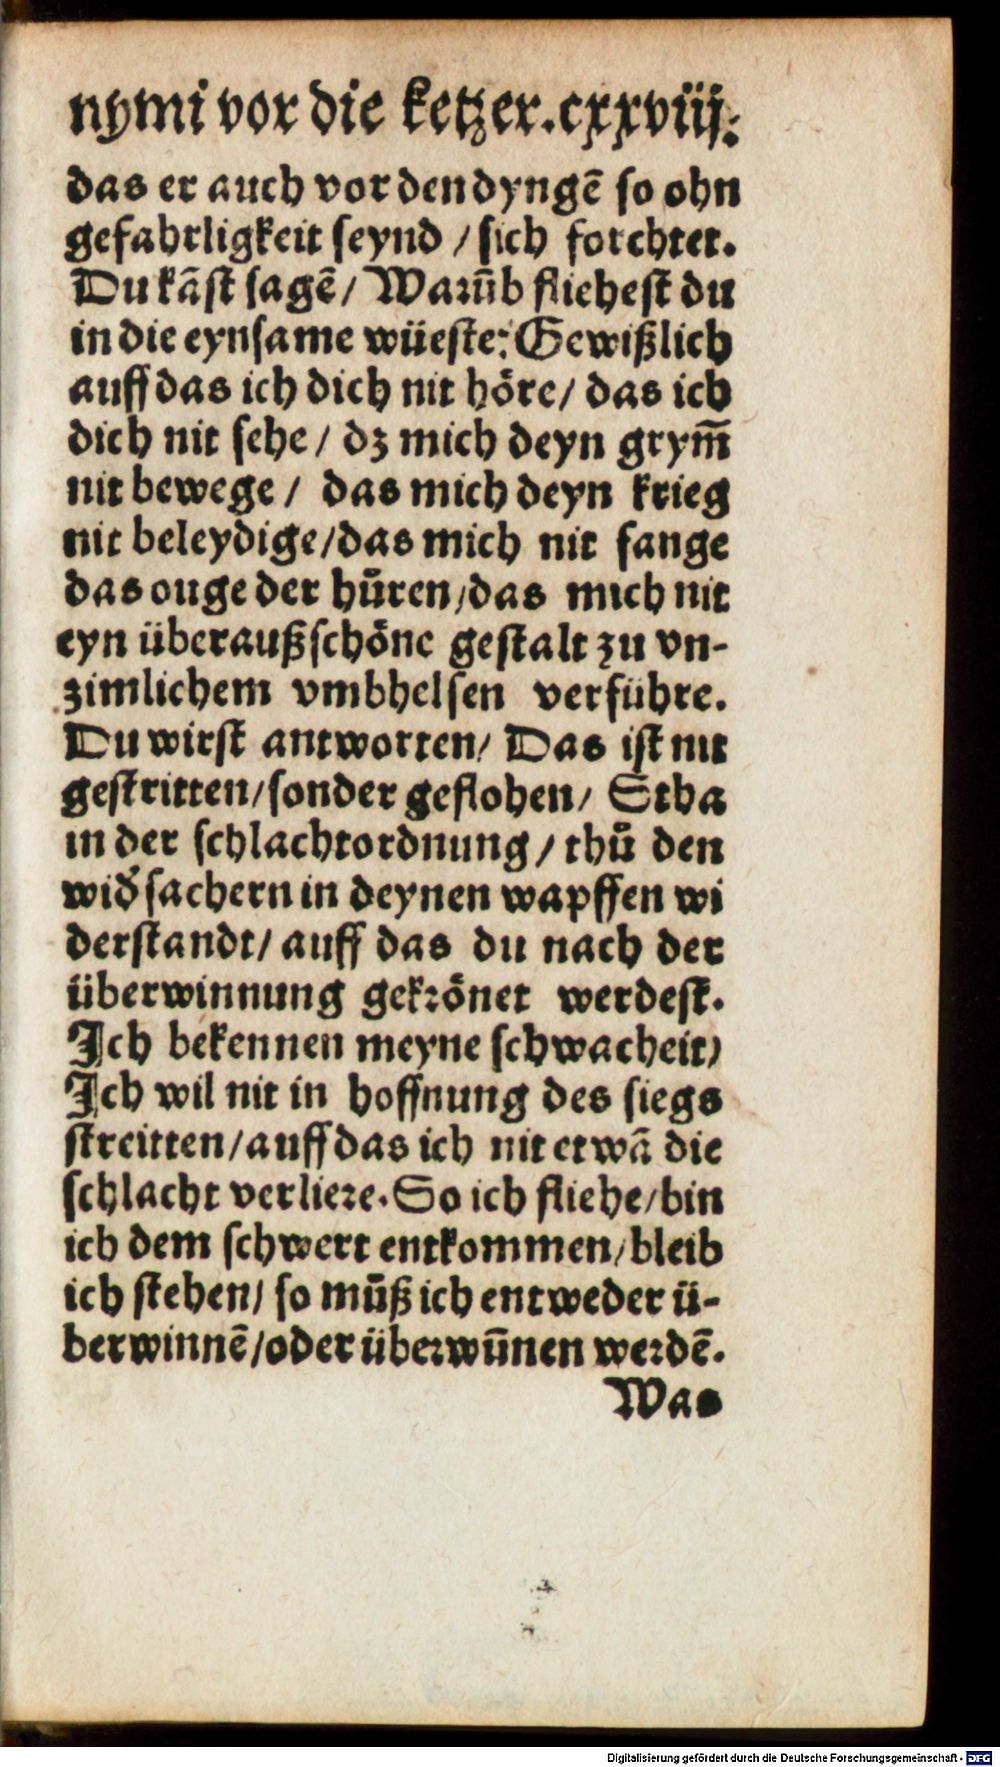 nymi vor die ketzer. cxxviij.
das er auch vor den dyngē so ohn
gefahrligkeit seynd / sich forchtet.
Du kāst sagē / Warūb fliehest du
in die eynsame wüeste: Gewißlich
auff das ich dich nit höre / das ich
dich nit sehe / dz mich deyn grym̄
nit bewege / das mich deyn krieg
nit beleydige / das mich nit fange
das ouge der hůren / das mich nit
eyn überauß schöne gestalt zu vn-
zimlichem vmbhelsen verführe.
Du wirst antworten / Das ist nit
gestritten / sonder geflohen / Stha
in der schlachtordnung / thů den
wid̾sachern in deynen wapffen wi
derstandt / auff das du nach der
überwinnung gekrönet werdest.
Ich bekennen meyne schwacheit /
Ich wil nit in hoffnung des siegs
streitten / auff das ich nit etwā die
schlacht verliere. So ich fliehe / bin
ich dem schwert entkommen / bleib
ich stehen / so můß ich entweder ü-
berwinnē / oder überwūnen werdē.
Was
Digitalisierung gefördert durch die Deutsche Forschungsgemeinschaft - DFG